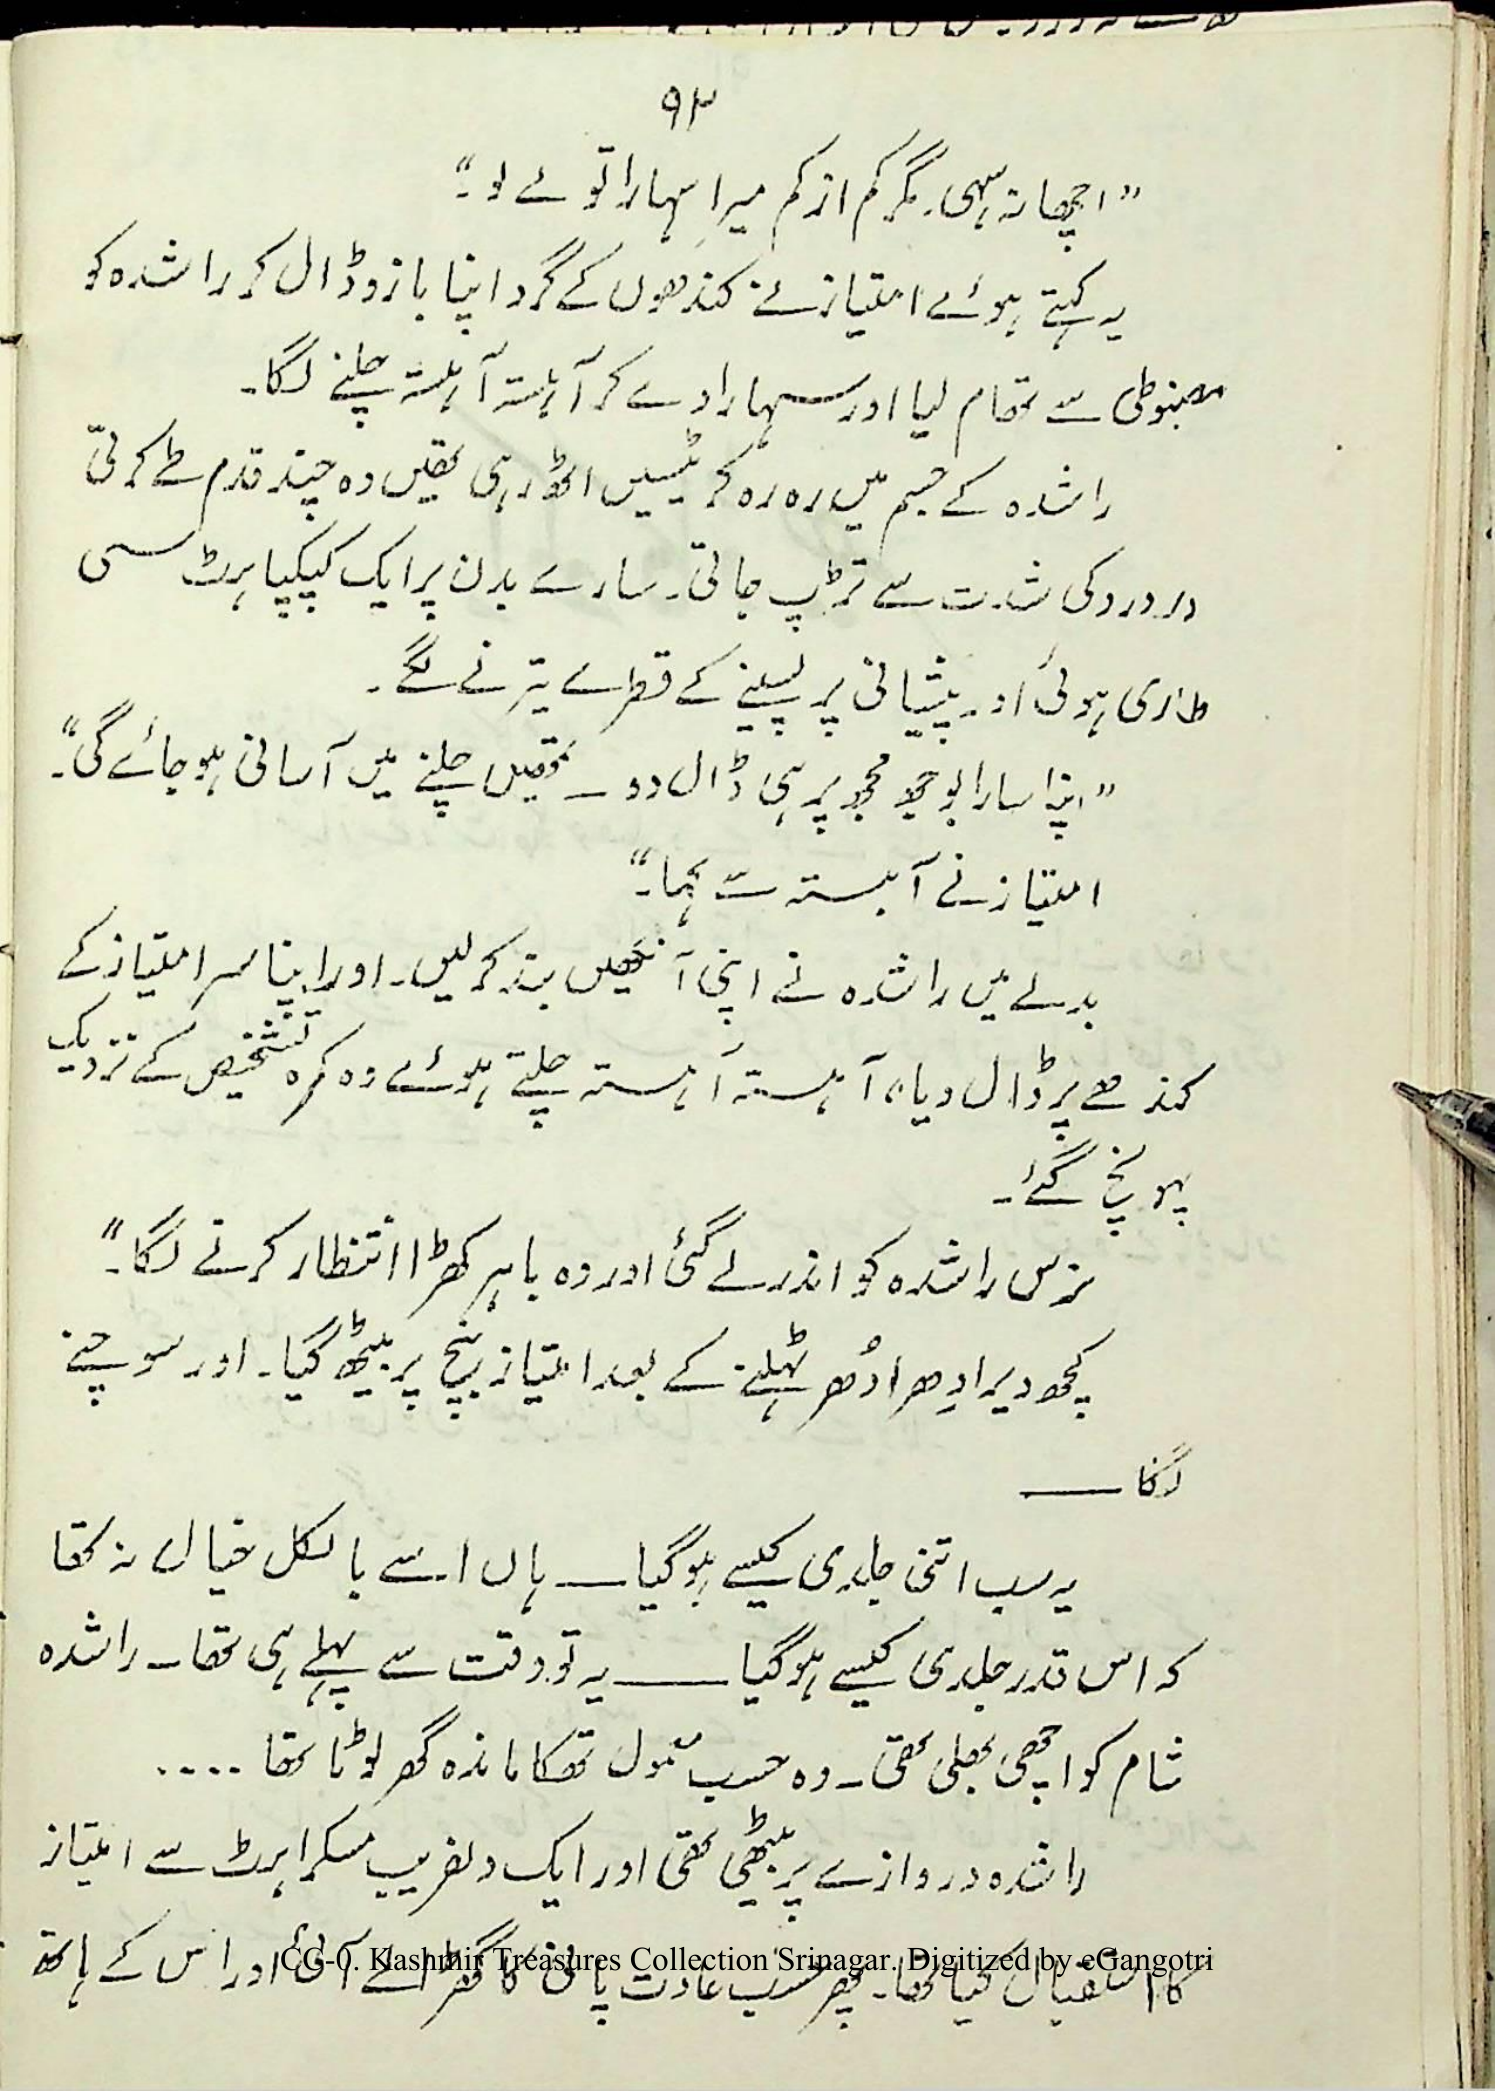 ۹۳
"اچھا نہ سہی۔ مگر کم از کم میرا سہارا تو لے لو۔"
یہ کہتے ہوئے امتیاز نے کندھوں کے گرد اپنا بازو ڈال کر راشدہ کو
مضبوطی سے تھام لیا اور سہارا دے کر آہستہ آہستہ چلنے لگا۔
راشدہ کے جسم میں رہ رہ کر ٹیسیں اٹھ رہی تھیں وہ چند قدم طے کرتی
اور درد کی شدت سے تڑپ جاتی۔ سارے بدن پر ایک کپکپاہٹ سی
طاری ہوئی اور پیشانی پر پسینے کے قطرے تیرنے لگے۔
"اپنا سارا بوجھ مجھ پر ہی ڈال دو ــ تمھیں چلنے میں آسانی ہو جائے گی"۔
امتیاز نے آہستہ سے کہا۔"
بدلے میں راشدہ نے اپنی آنکھیں بند کر لیں۔ اور اپنا سر امتیاز کے
کندھے پر ڈال دیا، آہستہ آہستہ چلتے ہوئے وہ کمرہ تشخیص کے نزدیک
پہونچ گئے۔
نرس راشدہ کو اندر لے گئی اور وہ باہر کھڑا انتظار کرنے لگا۔"
کچھ دیر اِدھر اُدھر ٹہلنے کے بعد امتیاز بنچ پر بیٹھ گیا۔ اور سوچنے
لگا ــــ
یہ سب اتنی جلدی کیسے ہو گیا ــــ ہاں اسے بالکل خیال نہ تھا
کہ اس قدر جلدی کیسے ہو گیا ــــ یہ تو وقت سے پہلے ہی تھا ــ راشدہ
شام کو اچھی بھلی تھی ــ وہ حسب معمول تھکا ماندہ گھر لوٹا تھا ....
راشدہ دروازے پر بیٹھی تھی اور ایک دلفریب مسکراہٹ سے امتیاز
کا استقبال کیا تھا۔ پھر حسب عادت پانی کا گھڑا لے آئی اور اس کے ہاتھ
CC-0. Kashmir Treasures Collection Srinagar. Digitized by eGangotri